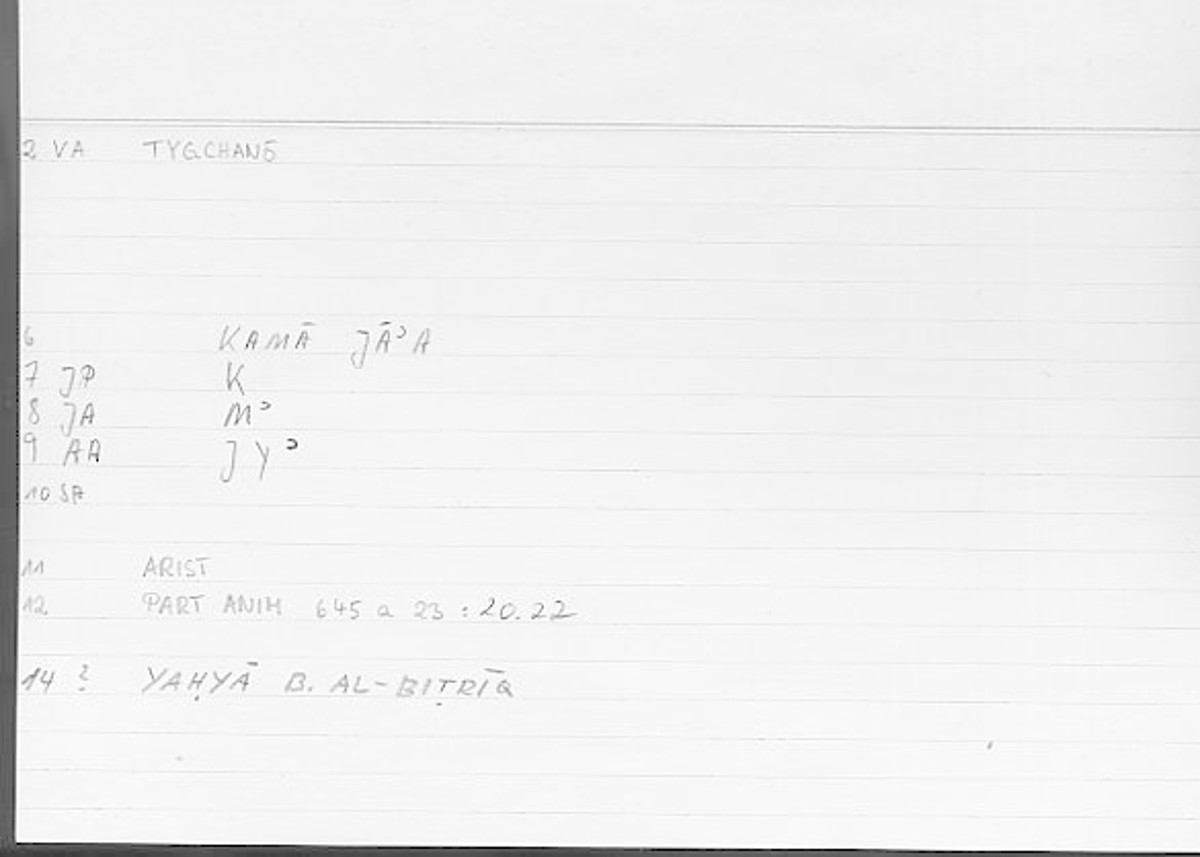 2 VA TYGCHANŌ
6 KAMĀ JĀʾA
7 JP K
8 JA Mʾ
9 AA JYʾ
10 SA
11 ARIST
12 PART ANIM 645 a 23 : 20.22
14 ? YAḤYĀ B. AL-BIṬRĪQ